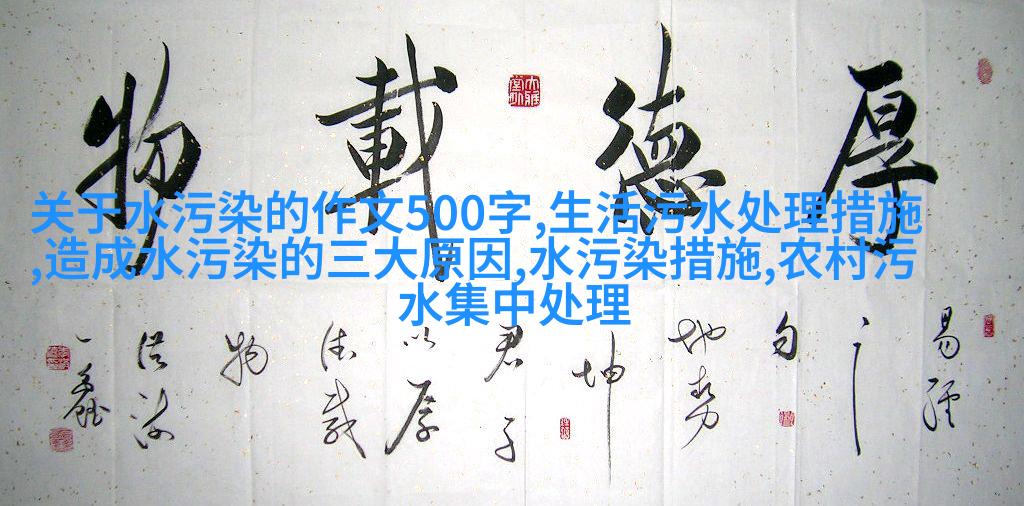 厚德載物
关于水污染的作文500字,生活污水处理措施
,造成水污染的三大原因,水污染措施,农村污
水集中处理
易經
之
句
地势
坤
君子
以厚
德载
物